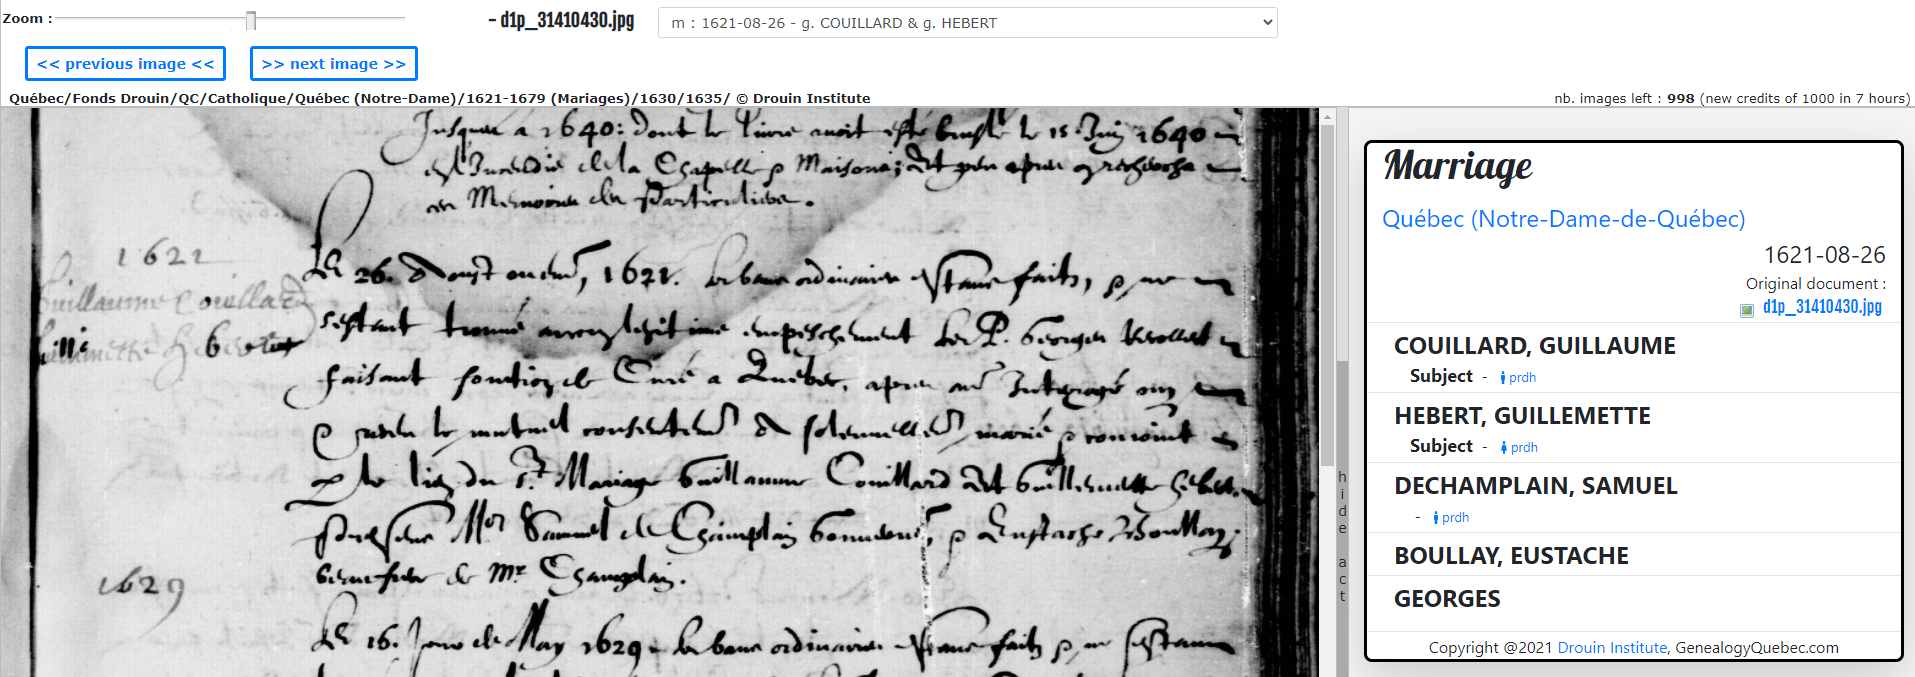 Zoom :
– d1p_31410430.jpg
m : 1621-08-26 - g. COUILLARD & g. HEBERT
<< previous image <<
>> next image >>
Québec/Fonds Drouin/QC/Catholique/Québec (Notre-Dame)/1621-1679 (Mariages)/1630/1635/ © Drouin Institute
nb. images left : 998 (new credits of 1000 in 7 hours)
Jusques a 1640: dont le livre avoit esté bruslé le 15 Juin 1640
de la Chapelle Maison; et peu apres
Memoires des Particuliers.
1621
Guillaume Couillard
Guillemette Hebert
Le 26. d'Aoust 1621. les bans ordinaires estans faits, et ne
s'estant trouvé aucun legitime empeschement le R.P. Georges
faisant fonction de Curé a Québec, apres avoir Interrogé
et receu le mutuel consentement a solennellement marié et conioint
par le lien du St. Mariage Guillaume Couillard et Guillemette Hebert.
Samuel de Champlain Gouverneur, et Eustache Boullay.
beaufrere de Mr. Champlain.
1629
Le 16. Jour de May 1629 les bans ordinaires estans faits et ne s'estant
hide act
Marriage
Québec (Notre-Dame-de-Québec)
1621-08-26
Original document :
d1p_31410430.jpg
COUILLARD, GUILLAUME
Subject - prdh
HEBERT, GUILLEMETTE
Subject - prdh
DECHAMPLAIN, SAMUEL
- prdh
BOULLAY, EUSTACHE
GEORGES
Copyright @2021 Drouin Institute, GenealogyQuebec.com